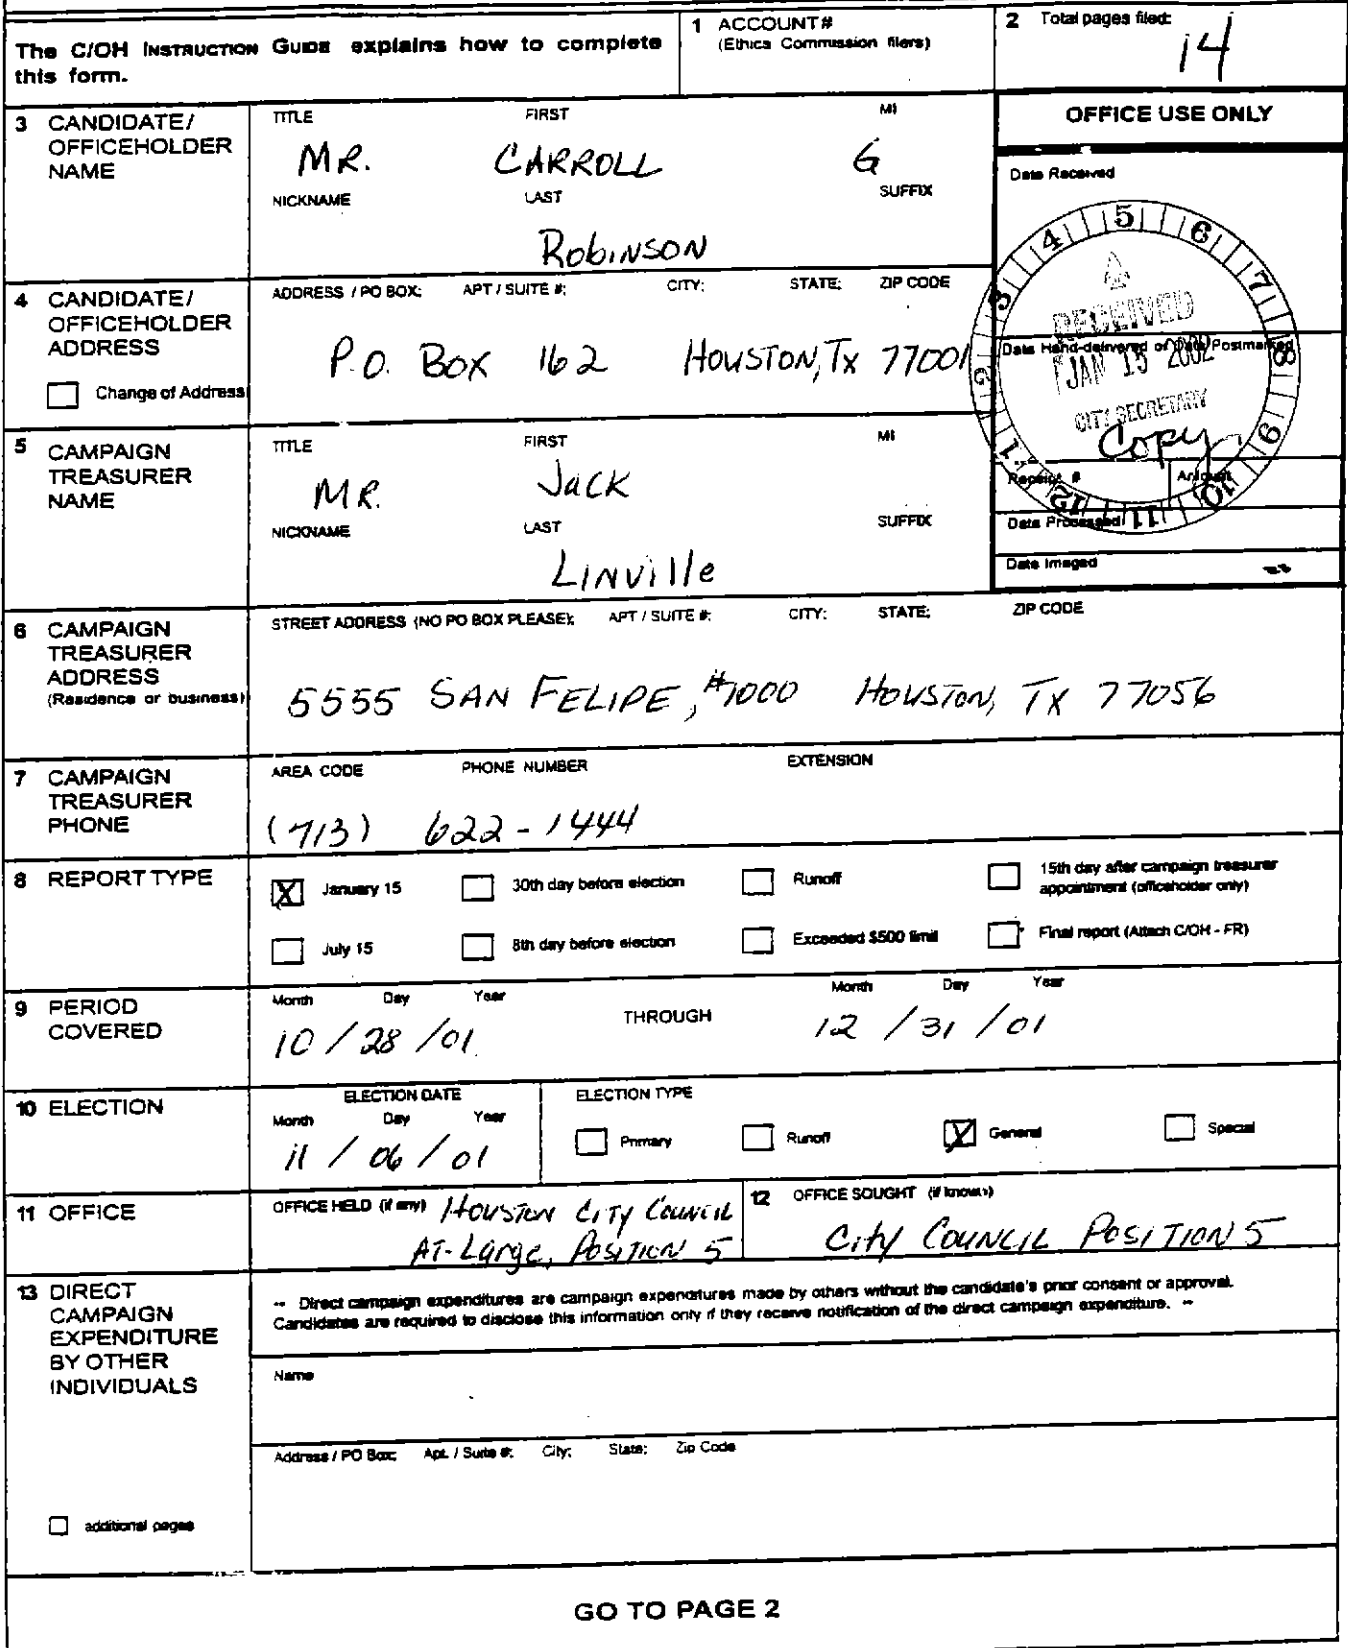 The C/OH INSTRUCTION GUIDE explains how to complete
this form.
1 ACCOUNT#
(Ethics Commission filers)
2 Total pages filed:
14
3 CANDIDATE/
OFFICEHOLDER
NAME
TITLE FIRST MI
MR. CARROLL G
NICKNAME LAST SUFFIX
Robinson
OFFICE USE ONLY
Date Received
4 CANDIDATE/
OFFICEHOLDER
ADDRESS
Change of Address
ADDRESS / PO BOX; APT / SUITE #; CITY; STATE; ZIP CODE
P.O. BOX 162 HOUSTON, Tx 77001
1 2 3 4 5 6 7 8 9 10 11 12
RECEIVED
JAN 15 2002
CITY SECRETARY
Copy
Date Hand-delivered or Date Postmarked
Receipt # Amount
Date Processed
Date Imaged
5 CAMPAIGN
TREASURER
NAME
TITLE FIRST MI
MR. Jack
NICKNAME LAST SUFFIX
Linville
6 CAMPAIGN
TREASURER
ADDRESS
(Residence or business)
STREET ADDRESS (NO PO BOX PLEASE); APT / SUITE #; CITY; STATE; ZIP CODE
5555 SAN FELIPE, #1000 HOUSTON, TX 77056
7 CAMPAIGN
TREASURER
PHONE
AREA CODE PHONE NUMBER EXTENSION
(713) 622-1444
8 REPORT TYPE
X January 15 30th day before election Runoff 15th day after campaign treasurer
appointment (officeholder only)
July 15 8th day before election Exceeded $500 limit Final report (Attach C/OH - FR)
9 PERIOD
COVERED
Month Day Year THROUGH Month Day Year
10 / 28 / 01 12 / 31 / 01
10 ELECTION
ELECTION DATE
Month Day Year
11 / 06 / 01
ELECTION TYPE
Primary Runoff X General Special
11 OFFICE
OFFICE HELD (if any) HOUSTON CITY COUNCIL
AT-Large, POSITION 5
12 OFFICE SOUGHT (if known)
City COUNCIL POSITION 5
13 DIRECT
CAMPAIGN
EXPENDITURE
BY OTHER
INDIVIDUALS
additional pages
-- Direct campaign expenditures are campaign expenditures made by others without the candidate's prior consent or approval.
Candidates are required to disclose this information only if they receive notification of the direct campaign expenditure. --
Name
Address / PO Box; Apt. / Suite #; City; State; Zip Code
GO TO PAGE 2